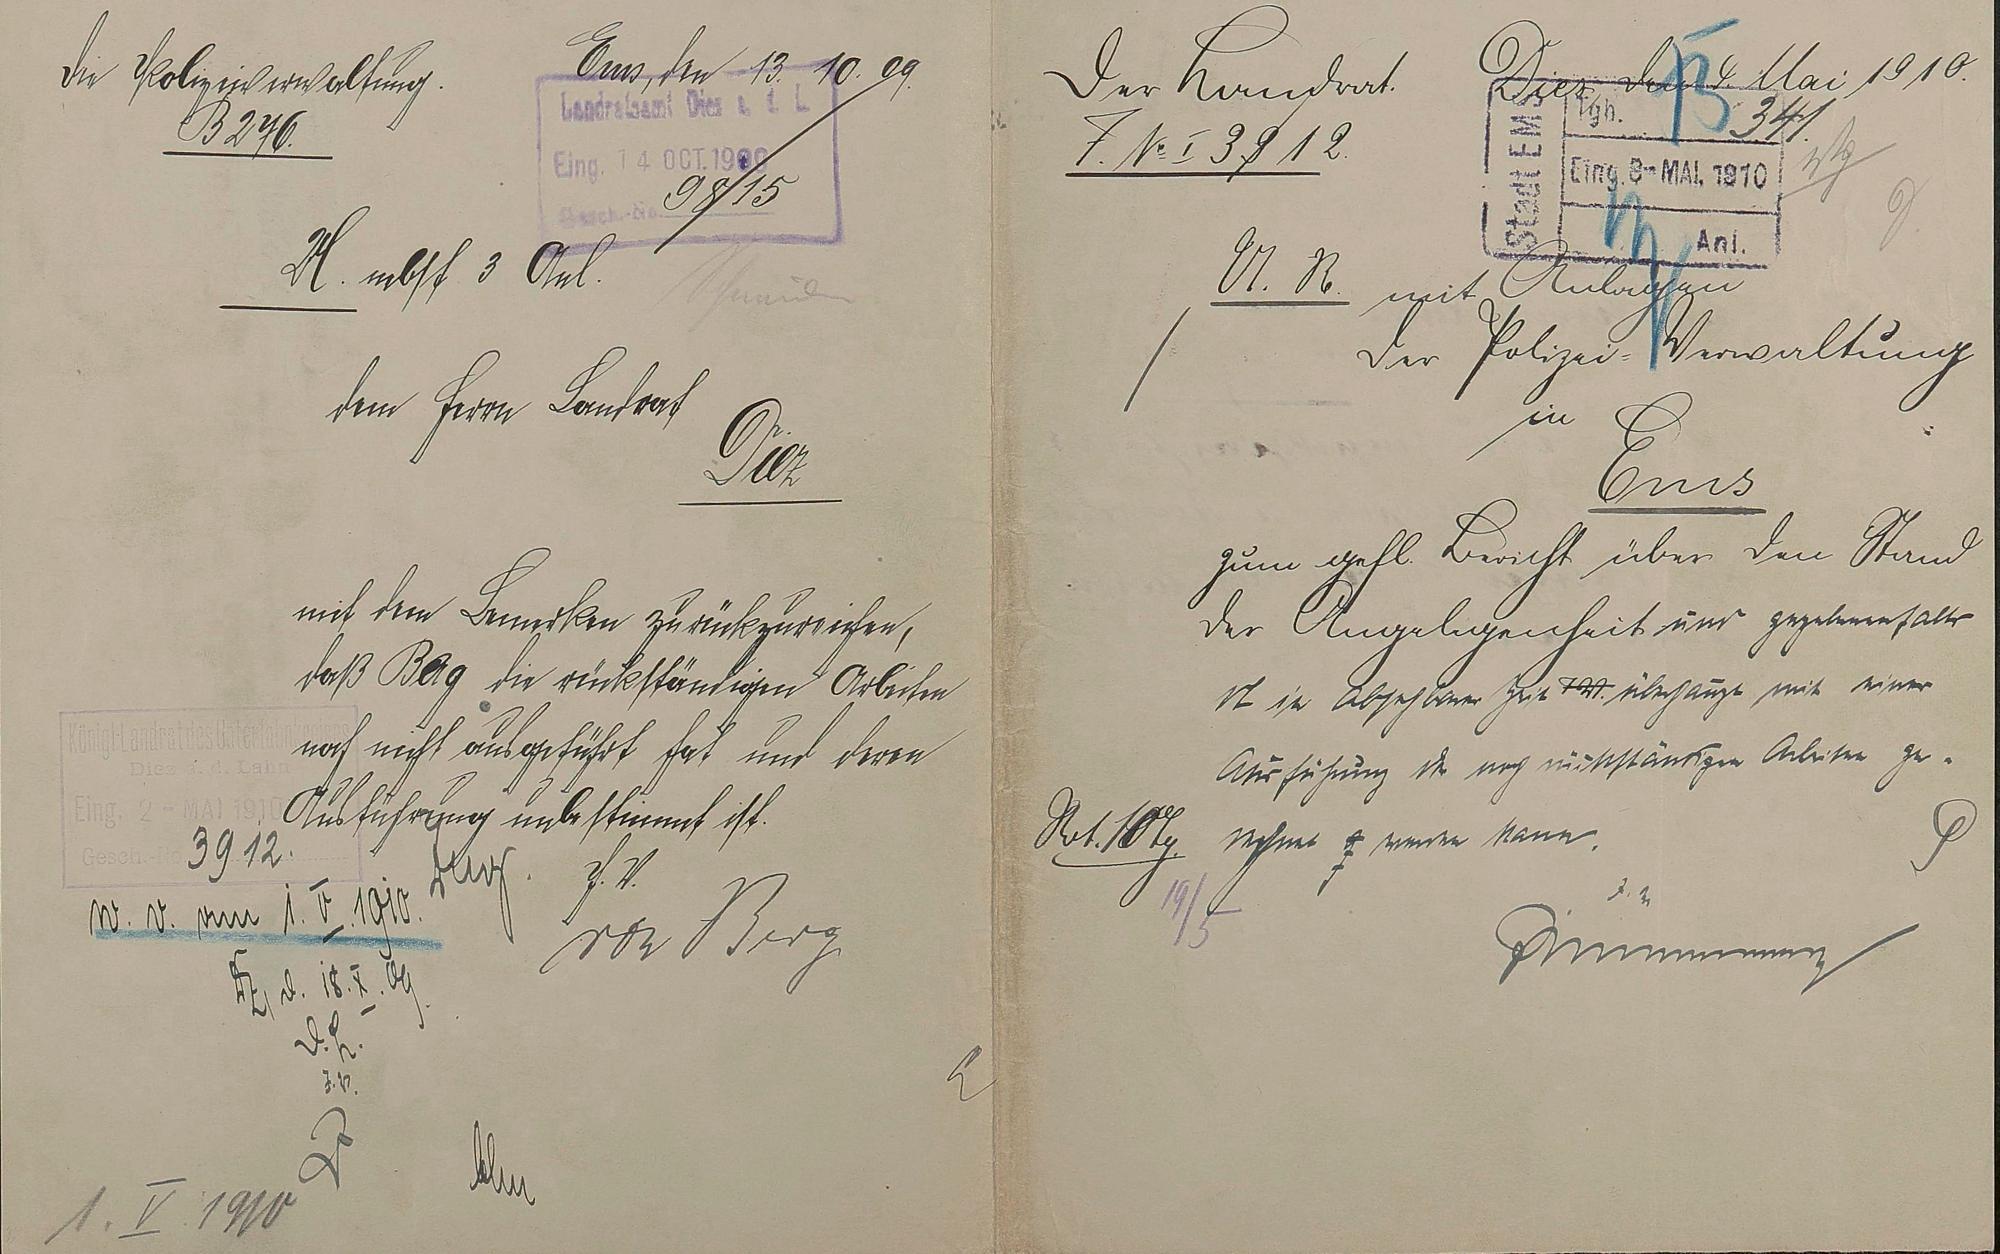 Die Polizeiverwaltung.
B 276.
Ems, den 13. 10. 09.
Landratsamt Diez a. d. L.
Eing. 14 OCT. 1909
Gesch.-No.
9815
U. nebst 3 Anl.
dem Herrn Landrat
Diez
mit dem Bemerken zurückzureichen,
daß Bag die rückständigen Arbeiten
noch nicht ausgeführt hat und deren
Ausführung unbestimmt ist.
J. V.
von Berg
Königl. Landrat des Unterlahnkreises
Diez a. d. Lahn
Eing. 2 - MAI 1910
Gesch.-No. 3912.
W. v. am 1. V. 1910.
Dz, d. 18. X. 09.
D. L.
J. V.
1. V. 1910
Der Landrat.
J. No I 3912.
Diez, den 4. Mai 1910.
Stadt EMS
Tgb. 341.
Eing. 8 - MAI. 1910
Anl.
U. R. mit Anlagen
der Polizei-Verwaltung
in
Ems
zum gefl. Bericht über den Stand
der Angelegenheit und gegebenenfalls
ob in absehbarer Zeit überhaupt mit einer
Ausführung der noch rückständigen Arbeiten ge-
rechnet werden kann.
19/5
J. V.
Zimmermann